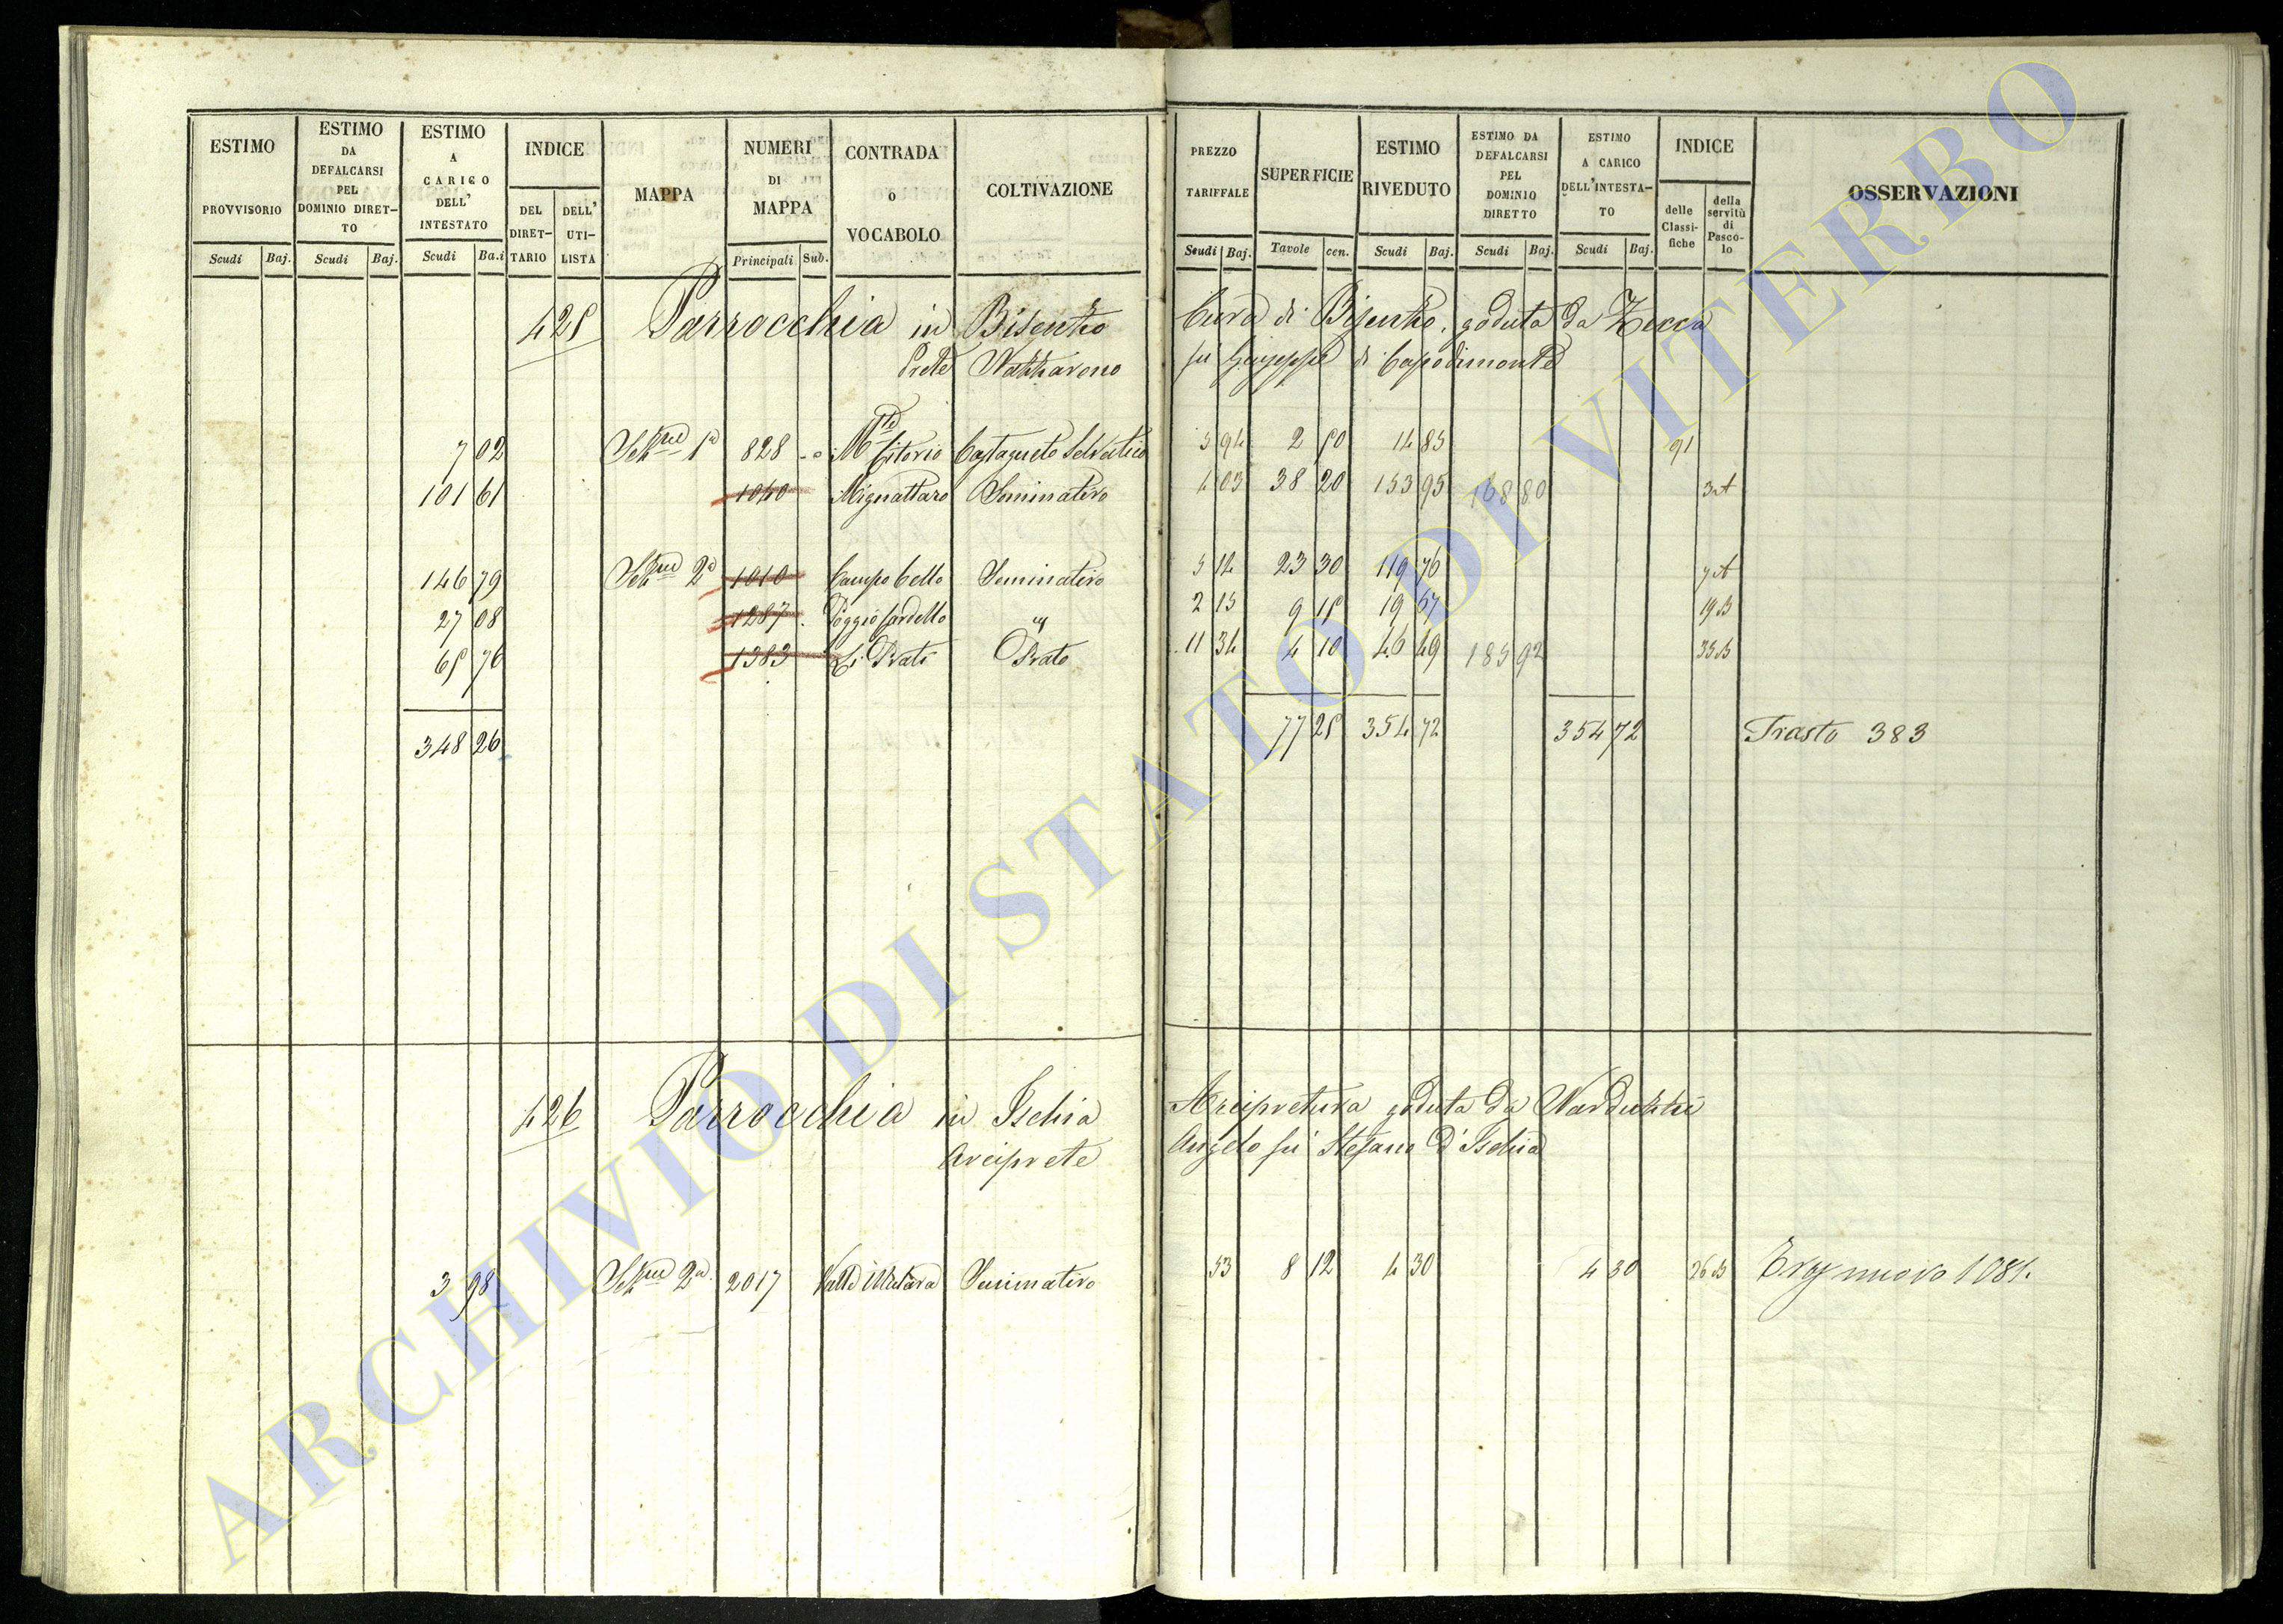 ESTIMO PROVVISORIO Scudi Baj.
ESTIMO DA DEFALCARSI PEL DOMINIO DIRETTO Scudi Baj.
ESTIMO A CARICO DELL' INTESTATO Scudi Ba.i
INDICE DEL DIRETTARIO DELL' UTILISTA
MAPPA
NUMERI DI MAPPA Principali Sub.
CONTRADA o VOCABOLO
COLTIVAZIONE
PREZZO TARIFFALE Scudi Baj.
SUPERFICIE Tavole cen.
ESTIMO RIVEDUTO Scudi Baj.
ESTIMO DA DEFALCARSI PEL DOMINIO DIRETTO Scudi Baj.
ESTIMO A CARICO DELL'INTESTATO Scudi Baj.
INDICE delle Classifiche della servitù di Pascolo
OSSERVAZIONI
425 Parrocchia in Bisentio Cura di Bisentio, goduta da Zecca
Prete Nazzareno fu Giuseppe di Capodimonte
7 02 828 Castagneto Selvatico 5 94 2 50 14 85 91
101 61 1040 Mignattaro Seminativo 4 03 38 20 153 95 168 80 3 A
146 79 1010 Campo bello Seminativo 5 14 23 30 119 76 7 A
27 08 1287 Poggio Cardello 2 15 9 15 19 67 19 B
65 76 1383 Li Prati Prato 11 34 4 10 46 49 185 92 35 B
348 26 77 25 354 72 354 72 Trasto 383
426 Parrocchia in Ischia Arcipretura goduta da Narduzzi
Arciprete Angelo fu Stefano d'Ischia
3 98 2017 Seminativo 53 8 12 4 30 4 30 26 B nuovo
ARCHIVIO DI STATO DI VITERBO